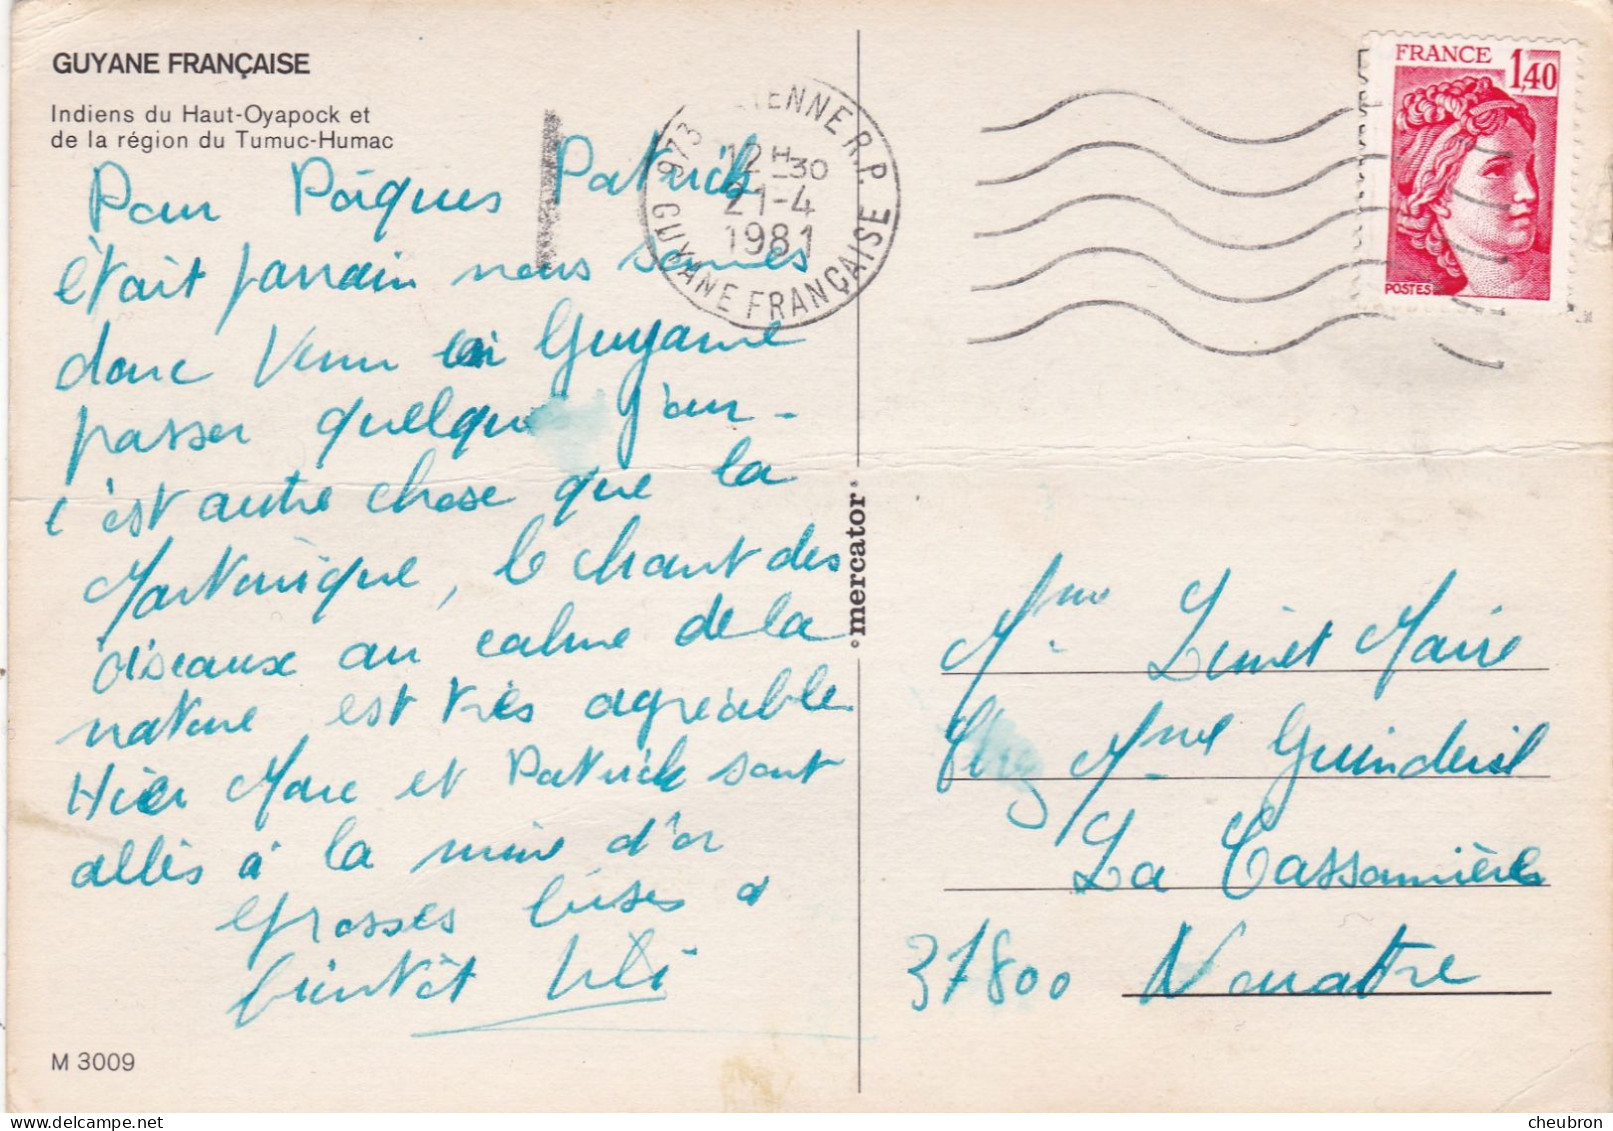 GUYANE FRANÇAISE
Indiens du Haut-Oyapock et
de la région du Tumuc-Humac
Pour Pâques Patrick
était parrain nous sommes
donc venu en Guyane
passer quelque jour -
c'est autre chose que la
Martinique, le chant des
oiseaux au calme de la
nature est très agréable
Hier Marc et Patrick sont
allés à la mine d'or
grosses bises à
bientôt
M 3009
mercator
973 ENNE R.P.
GUYANE FRANÇAISE
12 H 30
21-4
1981
FRANCE
1,40
POSTES
Mme Marie
Chez Mme
La
37800 Nouatre
cheubron